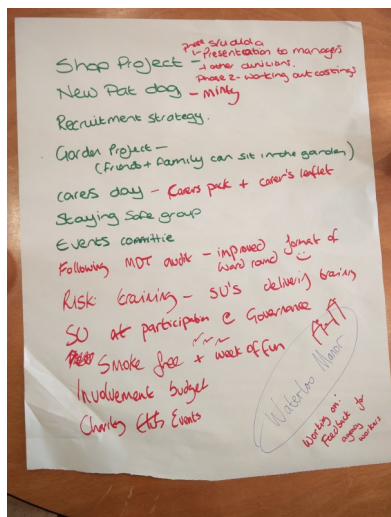 Presentation to managers
+ other divisions.
Shop Project - Phase 2 - working out costings
New Pat dog - Minty
Recruitment strategy.
Garden Project -
(friends + family can sit in the garden)
carers day - Carers pack + carer's leaflet
Staying Safe group
Events committie
Following MDT audit - improved format of
ward round
Risk training - SU's delivering training
SU at participation @ Governance
Smoke free + week of fun
Involvement budget
Charity Events
Waterloo Manor
Working on:
Feedback for
agency
workers